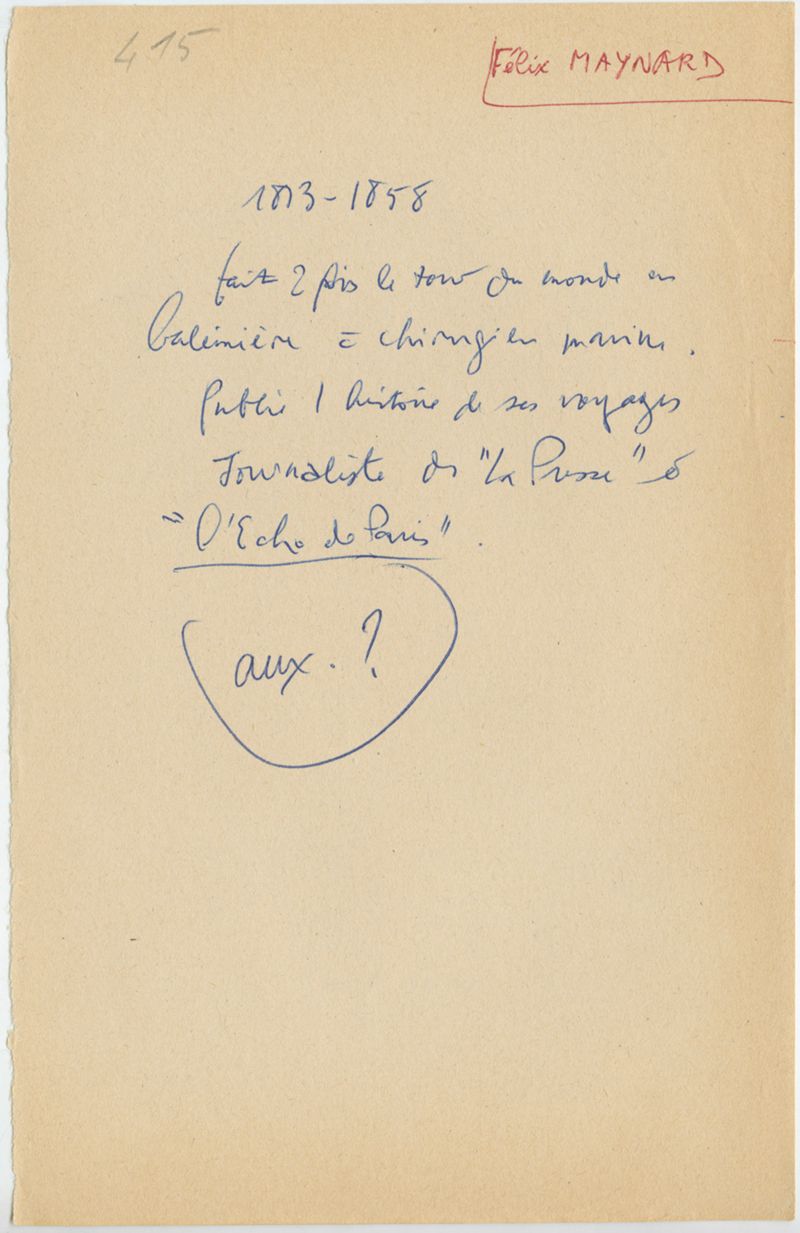 415
Félix MAYNARD
1813-1858
fait 2 fois le tour du monde en
baleinière = chirurgien marine.
Publie l'histoire de ses voyages
Journaliste de "La Presse" &
"l'Echo de Paris".
aux. ?